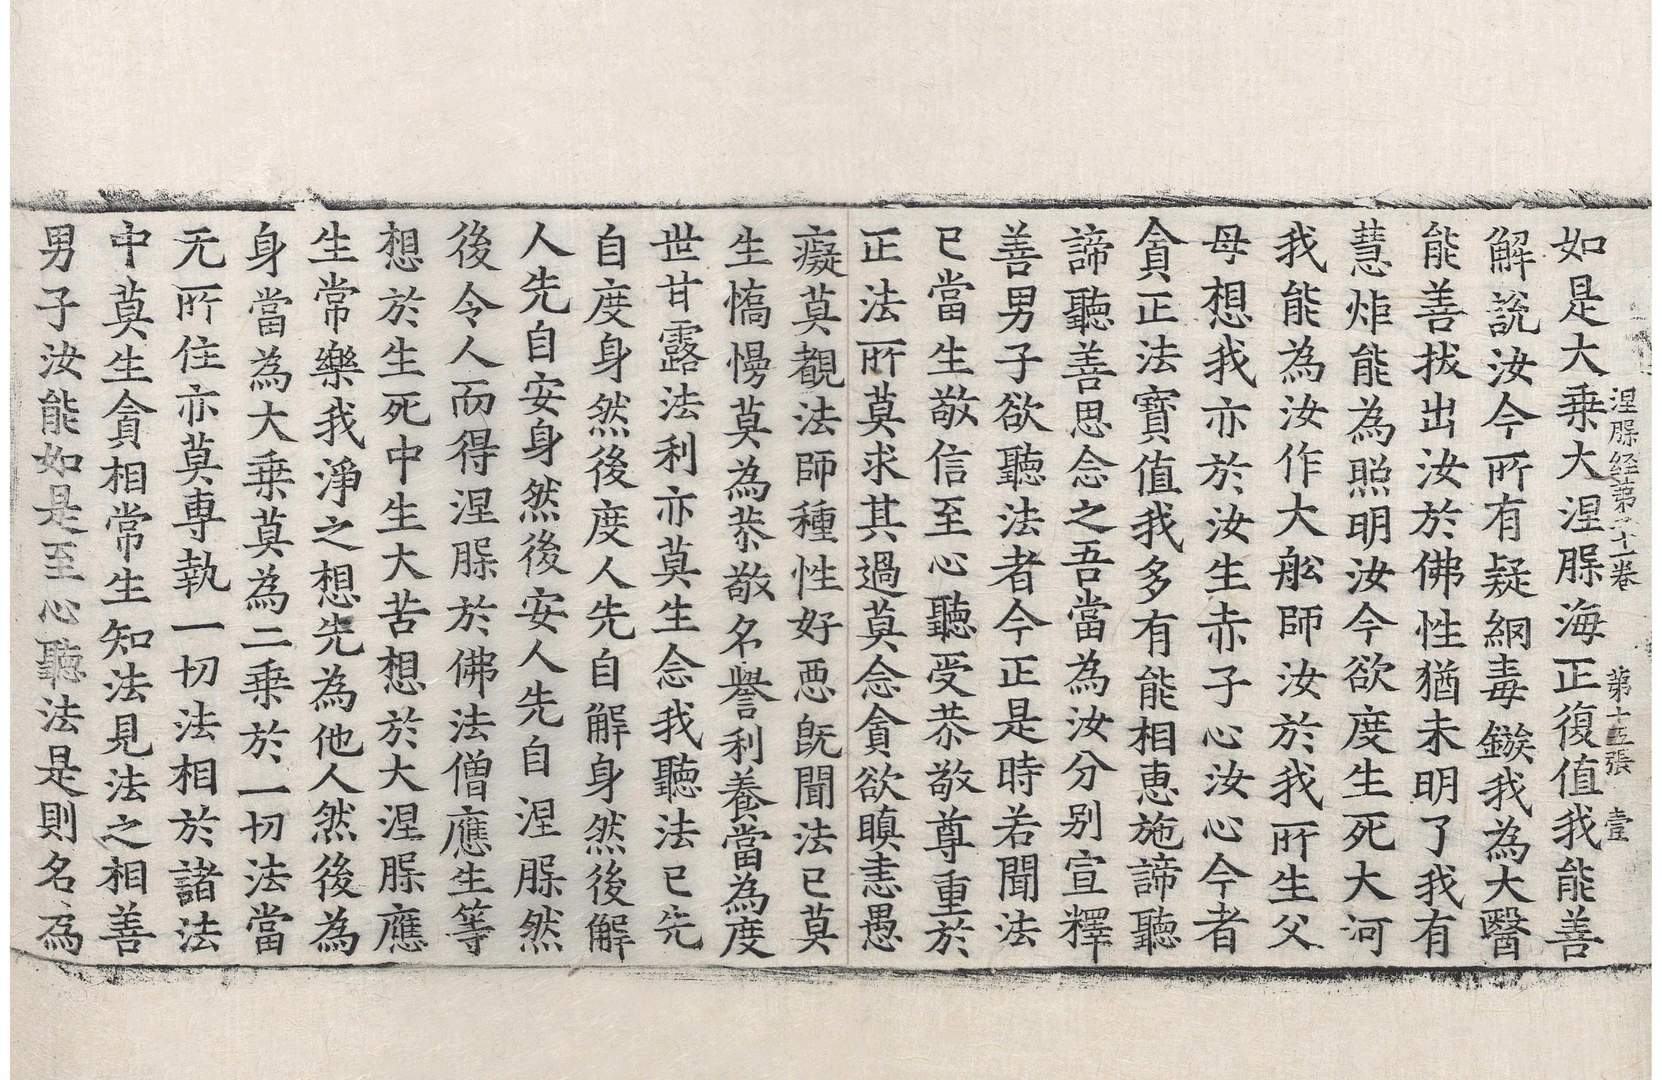 涅槃経第二十一卷　第十五張　壹
如是大乗大涅槃海正復值我能善
解說汝今所有疑網毒鏃我為大醫
能善拔出汝於佛性猶未明了我有
慧炬能為照明汝今欲度生死大河
我能為汝作大舩師汝於我所生父
母想我亦於汝生赤子心汝心今者
貪正法寳值我多有能相惠施諦聽
諦聽善思念之吾當為汝分別宣釋
善男子欲聽法者今正是時若聞法
已當生敬信至心聽受恭敬尊重於
正法所莫求其過莫念貪欲瞋恚愚
癡莫觀法師種性好惡既聞法已莫
生憍慢莫為恭敬名譽利養當為度
世甘露法利亦莫生念我聽法已先
自度身然後度人先自解身然後解
人先自安身然後安人先自涅槃然
後令人而得涅槃於佛法僧應生等
想於生死中生大苦想於大涅槃應
生常樂我淨之想先為他人然後為
身當為大乗莫為二乗於一切法當
无所住亦莫專執一切法相於諸法
中莫生貪相常生知法見法之相善
男子汝能如是至心聽法是則名為